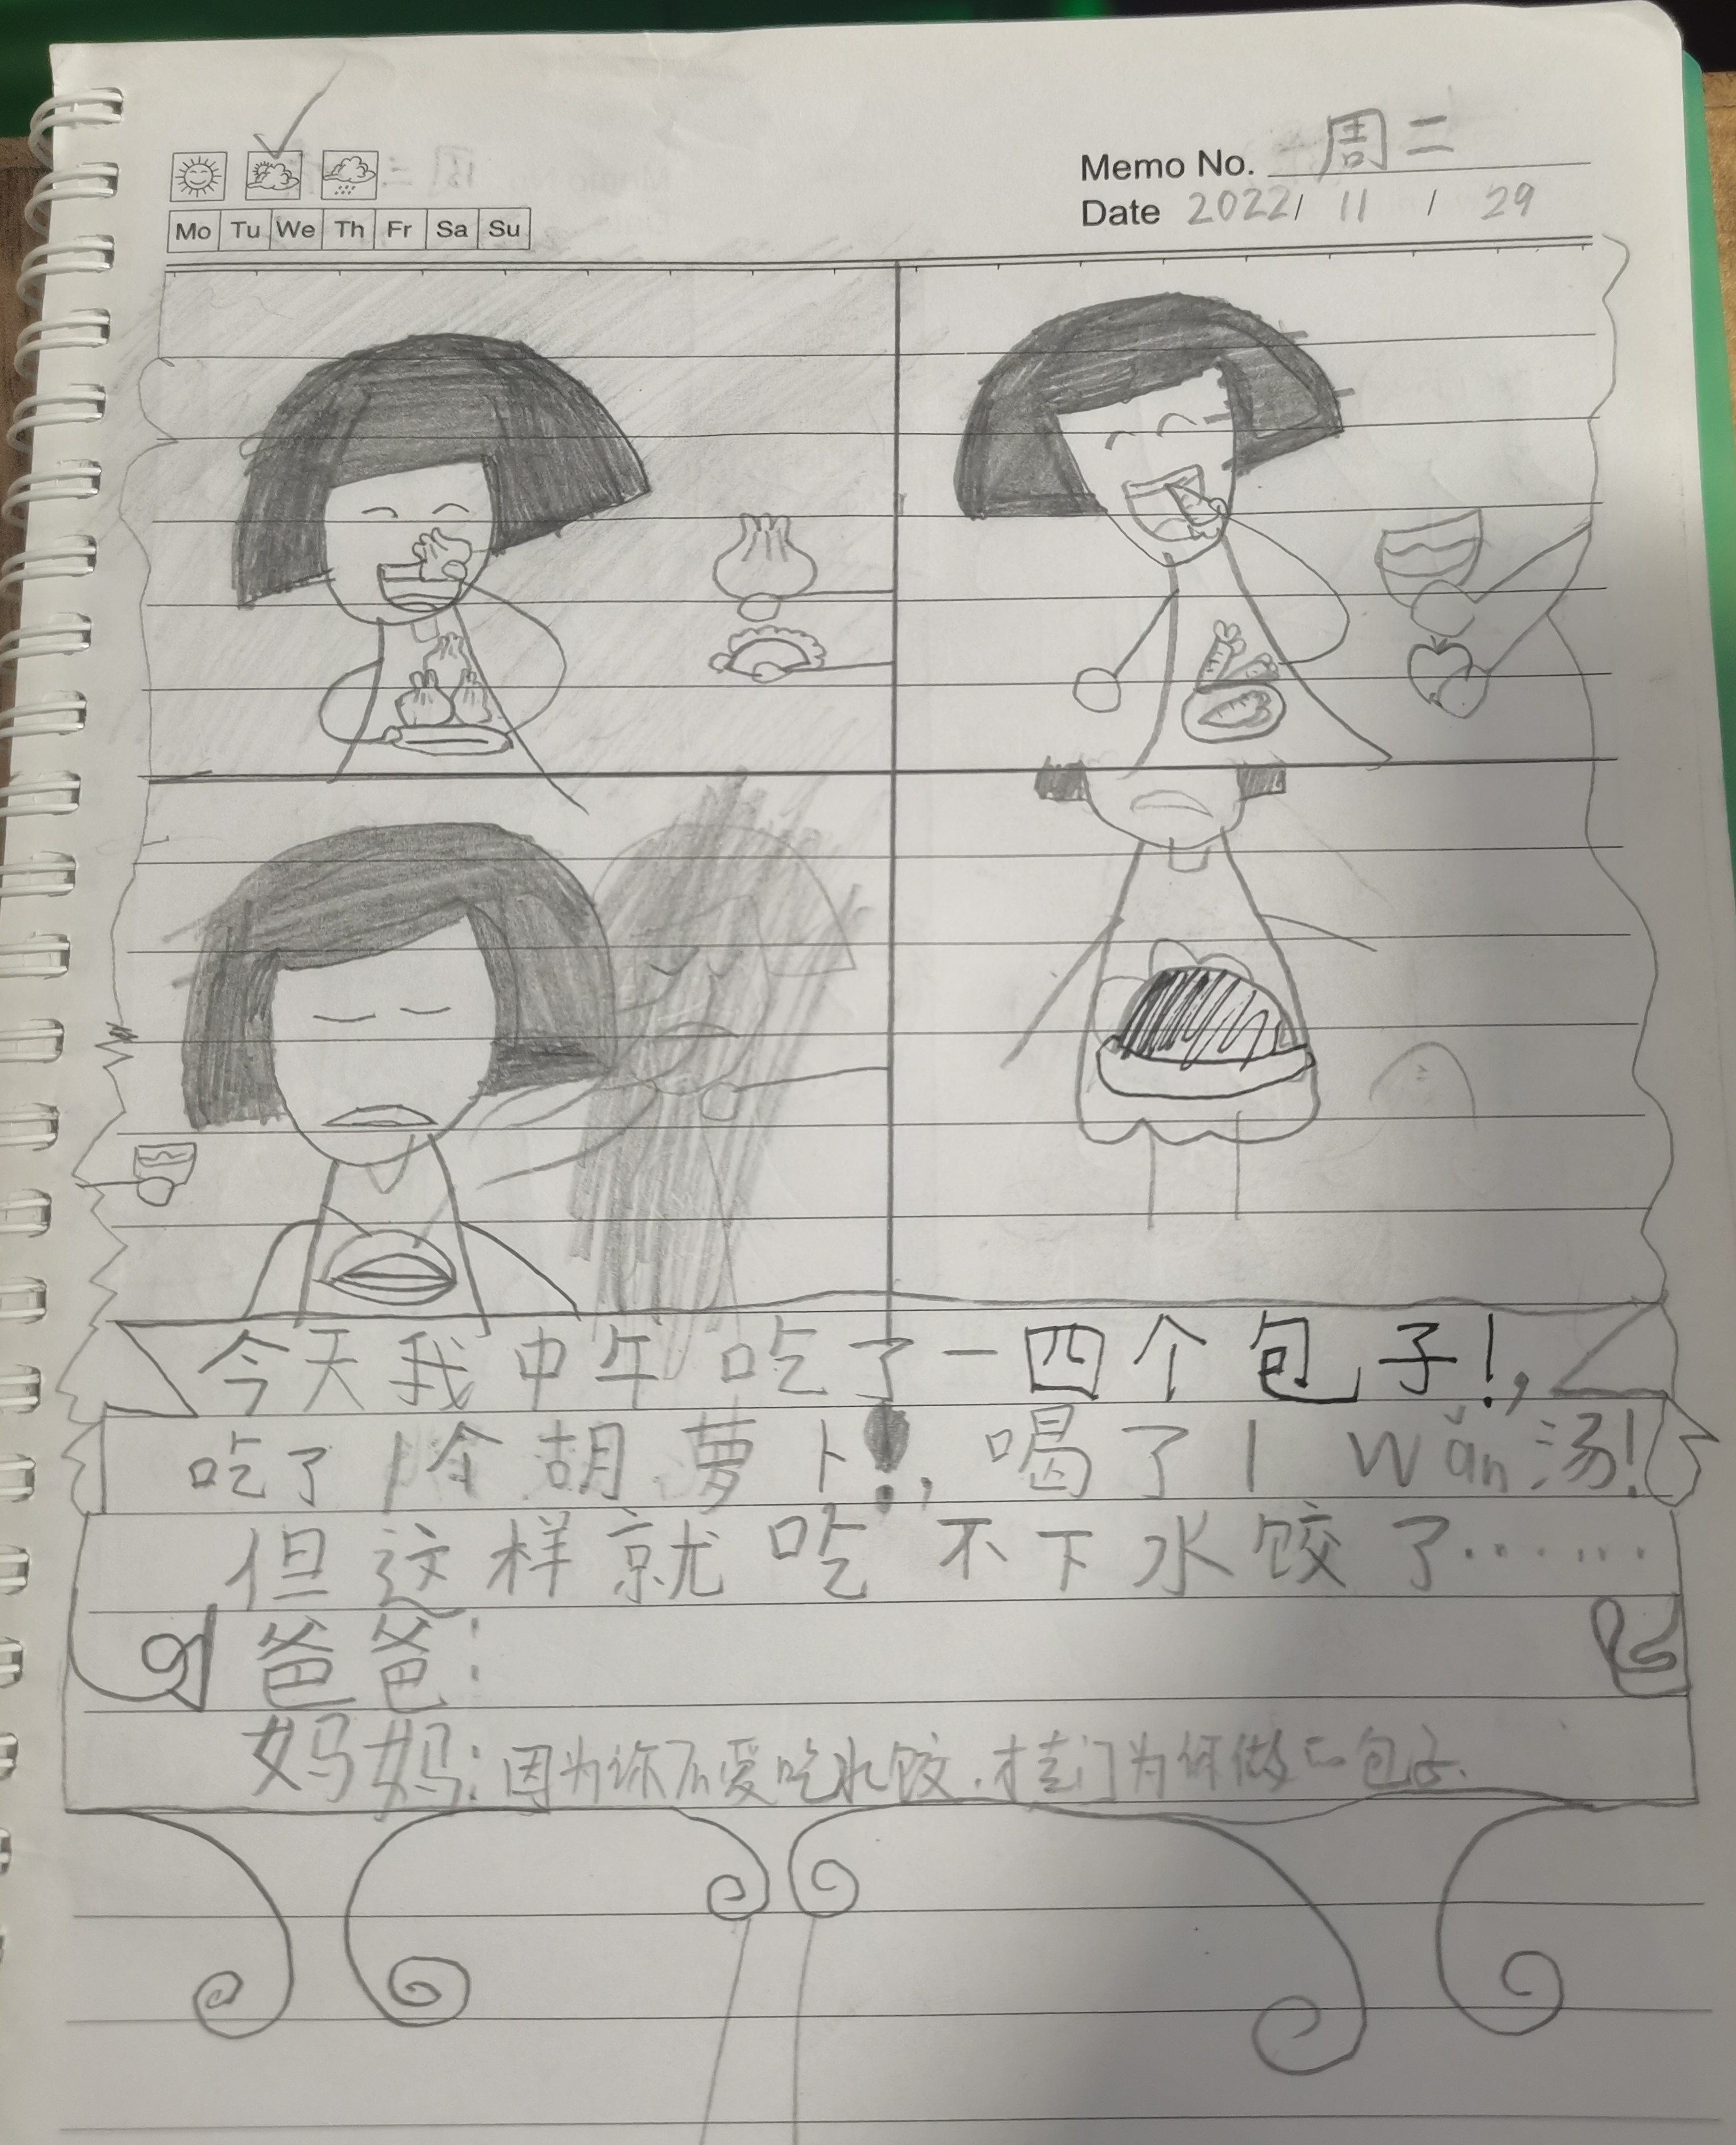 Memo No. 周二
Mo Tu We Th Fr Sa Su
Date 2022/ 11 / 29
今天我中午吃了一四个包子!,
吃了1个胡萝卜!,喝了1 wǎn汤!
但这样就吃不下水饺了……
爸爸:
妈妈:因为你不爱吃水饺.才专门为你做的包子.